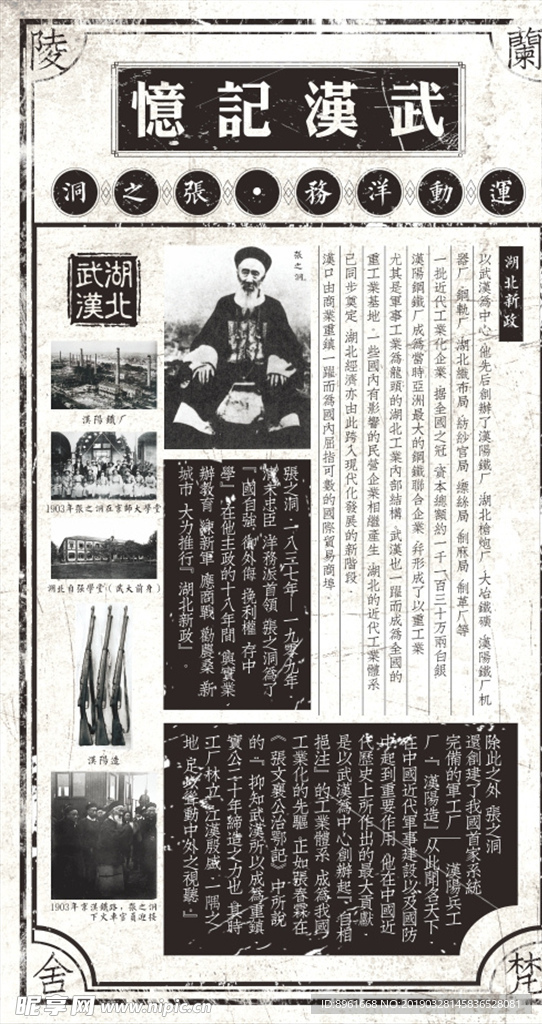 陵
蘭
武漢記憶
運動洋務·張之洞
湖北新政
以武漢為中心,他先后創辦了漢陽鐵厂、湖北槍炮厂、大冶鐵礦、漢陽鐵厂机
器厂、鋼軌厂、湖北織布局、紡紗官局、繅絲局、制麻局、制革厂等
一批近代工業化企業,据全國之冠,資本總額約一千一百三十万兩白銀
漢陽鋼鐵厂成為當時亞洲最大的鋼鐵聯合企業,幷形成了以重工業
尤其是軍事工業為龍頭的湖北工業內部結構,武漢也一躍而成為全國的
重工業基地,一些國內有影響的民營企業相繼產生,湖北的近代工業體系
已同步奠定,湖北經濟亦由此跨入現代化發展的新階段.
漢口由商業重鎮一躍而為國內屈指可數的國際貿易商埠.
張之洞
湖北武漢
漢陽鐵厂
1903年張之洞在京師大學堂
湖北自强學堂(武大前身)
漢陽造
1903年京漢鐵路,張之洞
下火車官員迎接
張之洞,一八三七年—一九零九年,
清末忠臣,洋務派首領,張之洞為了
『國自強,御外侮,挽利權,存中
學』,在他主政的十八年間,與實業
辦教育,練新軍,應商戰,勸農桑,新
城市,大力推行『湖北新政』.
除此之外,張之洞
還創建了我國首家系統
完備的軍工厂——漢陽兵工
厂,『漢陽造』从此聞名天下.
在中國近代軍事建設以及國防
中起到重要作用.他在中國近
代歷史上所作出的最大貢獻
是以武漢為中心創辦起『自相
挹注』的工業體系,成為我國
工業化的先驅.正如張春霖在
《張文襄公治鄂記》中所說
的『抑知武漢所以成為重鎮,
實公二十年締造之力也.其時
工厂林立,江漢殷盛,一隅之
地,足以聳動中外之視聽.』
舍
梵
昵享网 www.nipic.cn
ID:8961668 NO:20190328145836528081